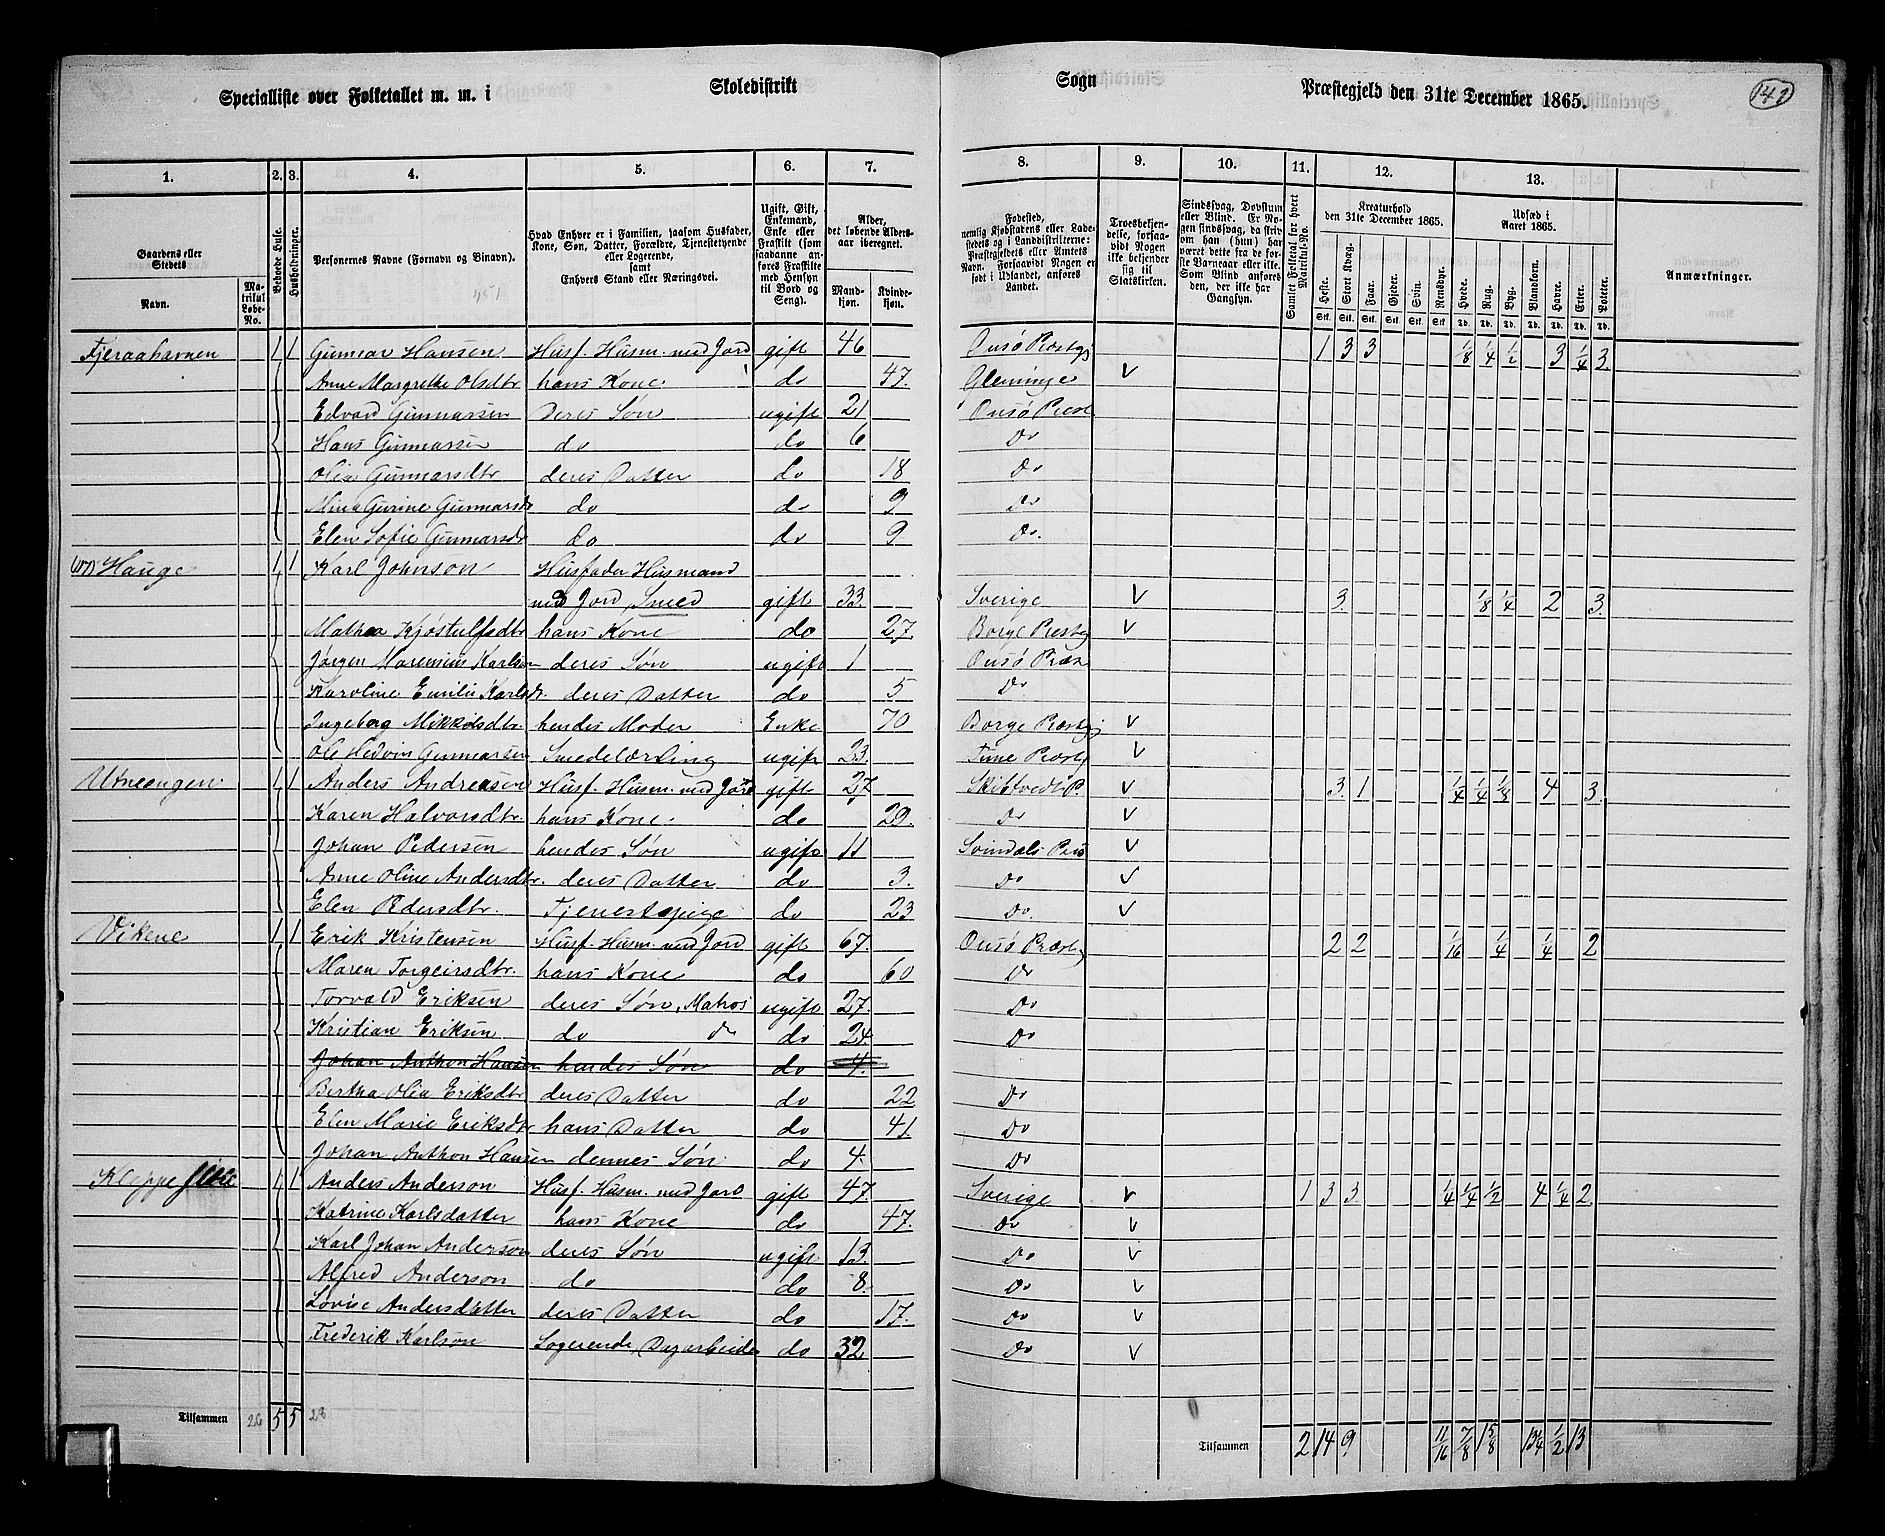 Specialliste over Folketallet m. m. i Skoledistrikt Sogn Præstegjeld den 31te December 1865. 141
1. 2. 3. 4. 5. 6. 7. 8. 9. 10. 11. 12. 13.
Gaardens eller Stedets Navn. Matrikul Løbe-No.
Beboede Huse.
Husholdninger.
Personernes Navne (Fornavn og Binavn).
Hvad Enhver er i Familien, saasom Husfader, Kone, Søn, Datter, Forældre, Tjenestetyende eller Logerende, samt Enhvers Stand eller Næringsvei.
Ugift, Gift, Enkemand, Enke eller Fraskilt (som saadanne anføres Fraskilte med Hensyn til Bord og Seng).
Alder, det løbende Alders-aar iberegnet. Mandkjøn. Kvindekjøn.
Fødested, nemlig Kjøbstadens eller Ladestedets og i Landdistrikterne: Præstegjeldets eller Amtets Navn. Forsaavidt Nogen er født i Udlandet, anføres Landet.
Troesbekjendelse, forsaavidt Nogen ikke bekjender sig til Statskirken.
Sindssvag, Døvstum eller Blind. Er Nogen sindssvag, da skriv om han (hun) har været dette fra de første Barneaar eller ikke. Som Blind anføres den, der ikke har Gangsyn.
Samlet Folketal for hvert Matrikul-No.
Kreaturhold den 31te December 1865. Heste. Stort Kvæg. Faar. Gjeder. Svin. Rensdyr.
Udsæd i Aaret 1865. Hvede. Rug. Byg. Blandkorn. Havre. Erter. Poteter.
Anmærkninger.
Fjeraahavnen 1 1 Gunnar Hansen Husf. Husm. med Jord gift 46 Onsø Præstgj 1 3 3 1/8 1/4 1/2 3 1/4 3.
Anne Margrethe Olsdtr hans Kone. do 47. Gleminge v
Edvard Gunnarsen Deres Søn ugift 21 Onsø Præst
Hans Gunnarsen do do 6 Do
Olia Gunnarsdtr deres Datter do 18 Do
Mina Gurine Gunnarsdr do do 9 Do
Elen Sofie Gunnarsdr do do 9 Do.
Hauge 1 1 Karl Johnson Husfader Husmand
med Jord, Smed gift 33. Sverige v 3. 1/8 1/4 2 3.
Mathea Kjøstulfsdtr hans Kone do 27. Borge Præstgj v
Jørgen Marensius Karlson deres Søn ugift 1 Onsø Præs
Karoline Emilie Karlsdr. deres Datter do 5 Do
Ingeborg Mikkelsdtr. hendes Moder Enke 70 Borge Præstgj v
Ole Hedvin Gunnarsen Smedelærling ugift 23. Tune Præstgj v
Utneengen 1 1 Anders Andreasen Husf. Husm. med Jord gift 27 Skibtvedt P. v 3. 1 1/4 1/4 1/8 4 3.
Karen Halvorsdtr. hans Kone. do 29. Do v
Johan Pedersen hendes Søn ugift 11 Svindals Præs v
Anne Oline Andersdtr. deres Datter do 3. Do v
Elen Pedersdtr. Tjenestepige do 23 Do v
Vikene 1 1 Erik Kristensen Husf. Husm. med Jord gift 67. Onsø Præstgj 2 2 1/16 1/4 1/4 2
Maren Torgeirsdtr. hans Kone do 60 Do
Torvald Eriksen deres Søn, Matros ugift 27. Do
Kristian Eriksen do do do 24. Do
Johan Anthon Hansen hendes Søn do 4.
Bertha Olia Eriksdtr deres Datter do 22 Do
Elen Marie Eriksdtr hans Datter do 41. Do
Johan Anthon Hansen dennes Søn do 4. Do
Kleppe 1 1 Anders Anderson Husf. Husm. med Jord gift 47. Sverige v 1 3 3 1/4 1/4 1/2 4 1/4 2
Katrine Karlsdatter hans Kone do 47. Do v
Karl Johan Anderson deres Søn ugift 13. Do v
Alfred Anderson do do 8. Do v
Lovise Andersdatter deres Datter do 17. Do v
Frederik Karlson Logerende, Dagarbeider do 32 Do v
Tilsammen 26 5 5 28 Tilsammen 2 14 9 11/16 7/8 15/8 13 1/4 1/2 13